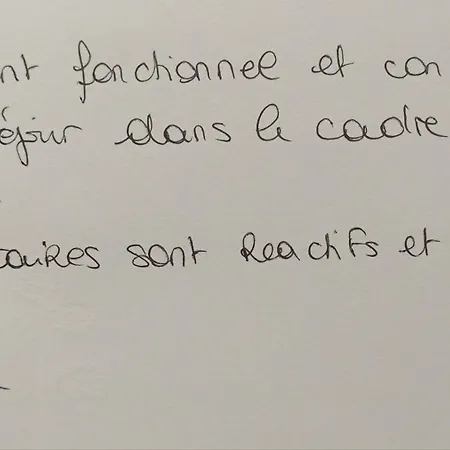 nt fonctionnel et con
éjour dans le cadre
aires sont Reactifs et